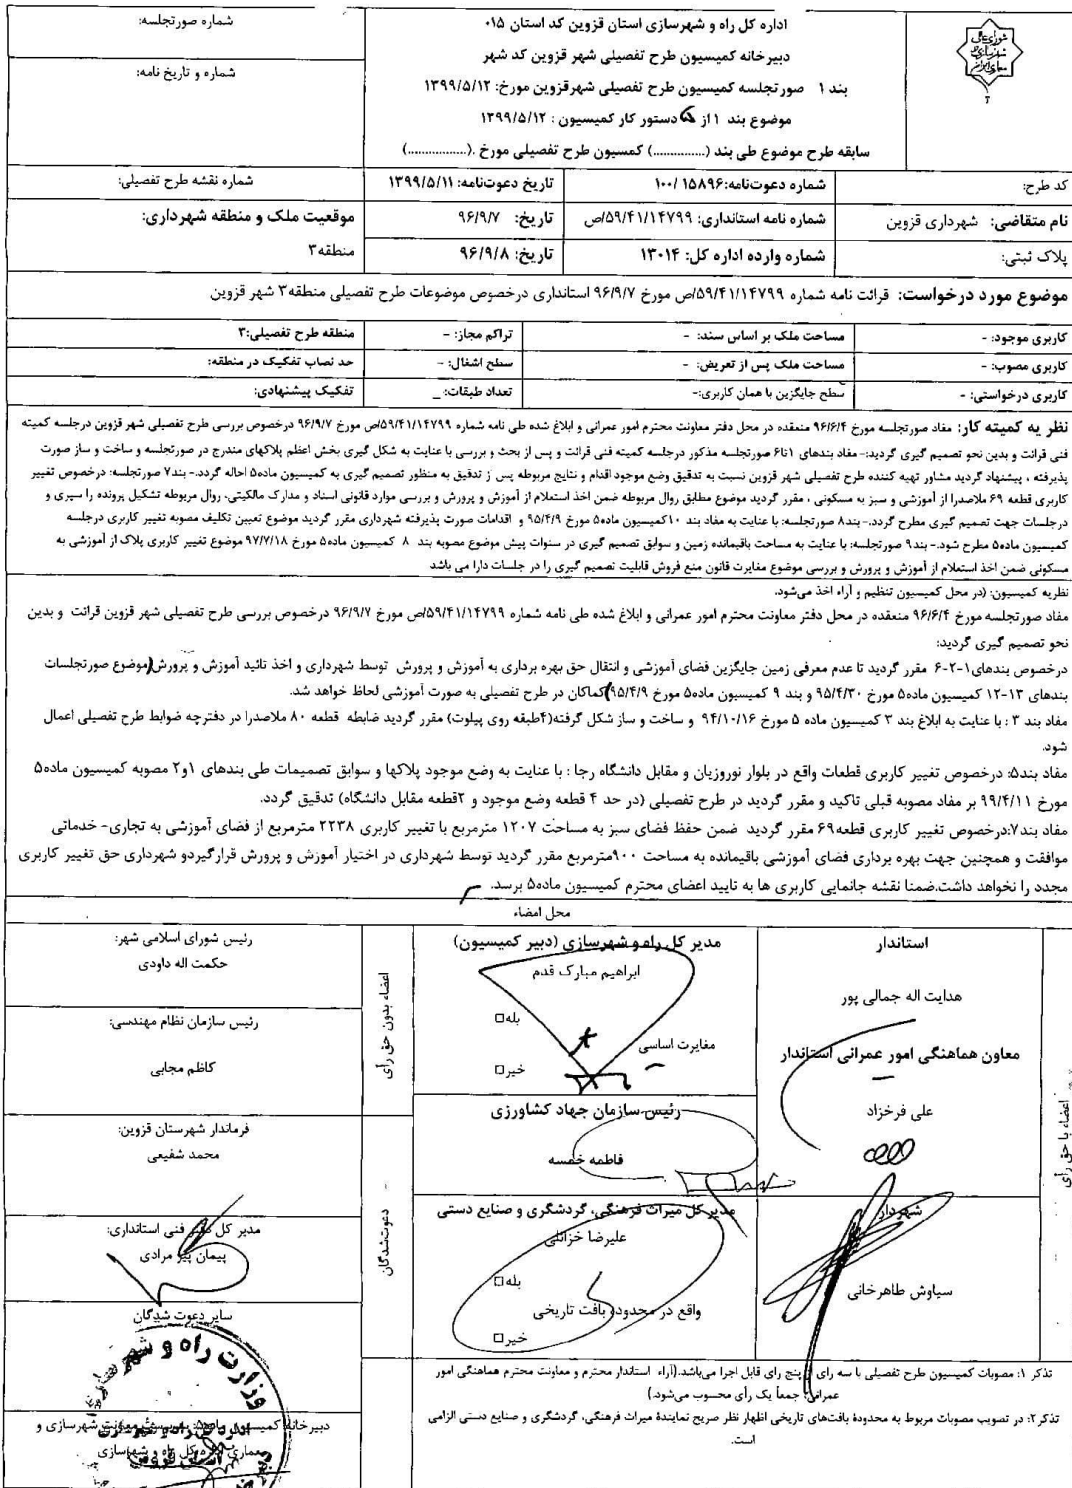 شماره صورتجلسه:
شماره و تاریخ نامه:
اداره کل راه و شهرسازی استان قزوین کد استان ۰۱۵
دبیرخانه کمیسیون طرح تفصیلی شهر قزوین کد شهر
بند ۱ صورتجلسه کمیسیون طرح تفصیلی شهرقزوین مورخ: ۱۳۹۹/۵/۱۲
موضوع بند ۱ از ۵ دستور کار کمیسیون : ۱۳۹۹/۵/۱۲
سابقه طرح موضوع طی بند (...............) کمسیون طرح تفصیلی مورخ .(................)
شورای عالی شهرسازی و معماری ایران
کد طرح:
شماره دعوت‌نامه:۱۵۸۹۶ /۱۰۰
تاریخ دعوت‌نامه: ۱۳۹۹/۵/۱۱
شماره نقشه طرح تفصیلی:
نام متقاضی: شهرداری قزوین
شماره نامه استانداری: ۵۹/۴۱/۱۴۷۹۹/ص
تاریخ: ۹۶/۹/۷
موقعیت ملک و منطقه شهرداری:
پلاک ثبتی:
شماره وارده اداره کل: ۱۳۰۱۴
تاریخ: ۹۶/۹/۸
منطقه۳
موضوع مورد درخواست: قرائت نامه شماره ۵۹/۴۱/۱۴۷۹۹/ص مورخ ۹۶/۹/۷ استانداری درخصوص موضوعات طرح تفصیلی منطقه۳ شهر قزوین
کاربری موجود: -
مساحت ملک بر اساس سند: -
تراکم مجاز: -
منطقه طرح تفصیلی:۳
کاربری مصوب: -
مساحت ملک پس از تعریض: -
سطح اشغال: -
حد نصاب تفکیک در منطقه:
کاربری درخواستی: -
سطح جایگزین با همان کاربری:-
تعداد طبقات: _
تفکیک پیشنهادی:
نظر یه کمیته کار: مفاد صورتجلسه مورخ ۹۶/۶/۴ منعقده در محل دفتر معاونت محترم امور عمرانی و ابلاغ شده طی نامه شماره ۵۹/۴۱/۱۴۷۹۹/ص مورخ ۹۶/۹/۷ درخصوص بررسی طرح تفصیلی شهر قزوین درجلسه کمیته
فنی قرائت و بدین نحو تصمیم گیری گردید:- مفاد بندهای ۱تا۶ صورتجلسه مذکور درجلسه کمیته فنی قرائت و پس از بحث و بررسی با عنایت به شکل گیری بخش اعظم پلاکهای مندرج در صورتجلسه و ساخت و ساز صورت
پذیرفته ، پیشنهاد گردید مشاور تهیه کننده طرح تفصیلی شهر قزوین نسبت به تدقیق وضع موجود اقدام و نتایج مربوطه پس از تدقیق به منظور تصمیم گیری به کمیسیون ماده۵ احاله گردد.- بند۷ صورتجلسه: درخصوص تغییر
کاربری قطعه ۶۹ ملاصدرا از آموزشی و سبز به مسکونی ، مقرر گردید موضوع مطابق روال مربوطه ضمن اخذ استعلام از آموزش و پرورش و بررسی موارد قانونی اسناد و مدارک مالکیتی، روال مربوطه تشکیل پرونده را سپری و
درجلسات جهت تصمیم گیری مطرح گردد.- بند۸ صورتجلسه: با عنایت به مفاد بند ۱۰ کمیسیون ماده۵ مورخ ۹۵/۴/۹ و اقدامات صورت پذیرفته شهرداری مقرر گردید موضوع تعیین تکلیف مصوبه تغییر کاربری درجلسه
کمیسیون ماده۵ مطرح شود.- بند۹ صورتجلسه: با عنایت به مساحت باقیمانده زمین و سوابق تصمیم گیری در سنوات پیش موضوع مصوبه بند ۸ کمیسیون ماده۵ مورخ ۹۷/۷/۱۸ موضوع تغییر کاربری پلاک از آموزشی به
مسکونی ضمن اخذ استعلام از آموزش و پرورش و بررسی موضوع مغایرت قانون منع فروش قابلیت تصمیم گیری را در جلسات دارا می باشد
نظریه کمیسیون: (در محل کمیسیون تنظیم و آراء اخذ می‌شود.
مفاد صورتجلسه مورخ ۹۶/۶/۴ منعقده در محل دفتر معاونت محترم امور عمرانی و ابلاغ شده طی نامه شماره ۵۹/۴۱/۱۴۷۹۹/ص مورخ ۹۶/۹/۷ درخصوص بررسی طرح تفصیلی شهر قزوین قرائت و بدین
نحو تصمیم گیری گردید:
درخصوص بندهای۱-۲-۶ مقرر گردید تا عدم معرفی زمین جایگزین فضای آموزشی و انتقال حق بهره برداری به آموزش و پرورش توسط شهرداری و اخذ تائید آموزش و پرورش(موضوع صورتجلسات
بندهای ۱۳-۱۲ کمیسیون ماده۵ مورخ ۹۵/۴/۳۰ و بند ۹ کمیسیون ماده۵ مورخ ۹۵/۴/۹)کماکان در طرح تفصیلی به صورت آموزشی لحاظ خواهد شد.
مفاد بند ۳ : با عنایت به ابلاغ بند ۳ کمیسیون ماده ۵ مورخ ۹۴/۱۰/۱۶ و ساخت و ساز شکل گرفته(۴طبقه روی پیلوت) مقرر گردید ضابطه قطعه ۸۰ ملاصدرا در دفترچه ضوابط طرح تفصیلی اعمال
شود.
مفاد بند۵: درخصوص تغییر کاربری قطعات واقع در بلوار نوروزیان و مقابل دانشگاه رجا : با عنایت به وضع موجود پلاکها و سوابق تصمیمات طی بندهای ۱و۲ مصوبه کمیسیون ماده۵
مورخ ۹۹/۴/۱۱ بر مفاد مصوبه قبلی تاکید و مقرر گردید در طرح تفصیلی (در حد ۴ قطعه وضع موجود و ۲قطعه مقابل دانشگاه) تدقیق گردد.
مفاد بند۷:درخصوص تغییر کاربری قطعه۶۹ مقرر گردید ضمن حفظ فضای سبز به مساحت ۱۲۰۷ مترمربع با تغییر کاربری ۲۲۳۸ مترمربع از فضای آموزشی به تجاری- خدماتی
موافقت و همچنین جهت بهره برداری فضای آموزشی باقیمانده به مساحت ۹۰۰مترمربع مقرر گردید توسط شهرداری در اختیار آموزش و پرورش قرارگیردو شهرداری حق تغییر کاربری
مجدد را نخواهد داشت.ضمنا نقشه جانمایی کاربری ها به تایید اعضای محترم کمیسیون ماده۵ برسد.
محل امضاء
اعضاء با حق رأی
استاندار
هدایت اله جمالی پور
معاون هماهنگی امور عمرانی استاندار
علی فرخزاد
شهردار
سیاوش طاهرخانی
مدیر کل راه و شهرسازی (دبیر کمیسیون)
ابراهیم مبارک قدم
بله□
مغایرت اساسی
خیر□
رئیس سازمان جهاد کشاورزی
فاطمه خمسه
مدیر کل میراث فرهنگی، گردشگری و صنایع دستی
علیرضا خزائلی
بله□
واقع در محدوده بافت تاریخی
خیر□
اعضاء بدون حق رأی
رئیس شورای اسلامی شهر:
حکمت اله داودی
رئیس سازمان نظام مهندسی:
کاظم مجابی
دعوت‌شدگان
فرماندار شهرستان قزوین:
محمد شفیعی
مدیر کل دفتر فنی استانداری:
پیمان پیر مرادی
سایر دعوت شدگان
وزارت راه و شهرسازی
اداره کل راه و شهرسازی
استان قزوین
دبیرخانه کمیسیون ماده۵: سرپرست معاونت شهرسازی و
معماری اداره کل راه و شهرسازی
تذکر ۱: مصوبات کمیسیون طرح تفصیلی با سه رای از پنج رای قابل اجرا می‌باشد.(آراء استاندار محترم و معاونت محترم هماهنگی امور
عمرانی جمعاً یک رأی محسوب می‌شود.)
تذکر۲: در تصویب مصوبات مربوط به محدودهٔ بافت‌های تاریخی اظهار نظر صریح نمایندهٔ میراث فرهنگی، گردشگری و صنایع دستی الزامی
است.